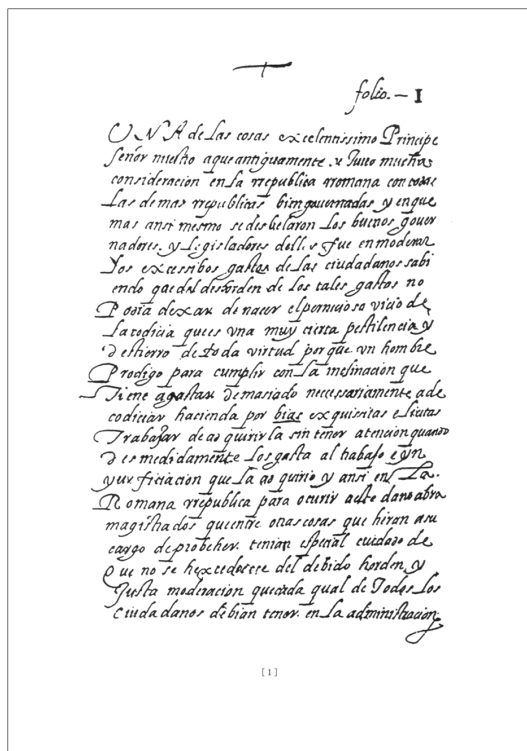 folio. – I
UNA de las cosas excelentissimo Principe
señor nuestro a que antiguamente. v Tuuo muchas
consideracion en la rrepublica rromana con todas
las demas rrepublicas bien gouernadas y en que
mas ansi mesmo se desbelaron los buenos gouer
nadores. y Legisladores della. fue en moderar
los excessibos gastos de las ciudadanos sabi
endo que del desorden de los tales gastos no
Podia dexar de nacer el pernicioso vicio de
la codicia ques vna muy cierta pestilencia y
destierro de toda virtud por que vn hombre
Prodigo para cumplir con la inclinacion que
Tiene a gastar demasiado necessariamente a de
codiciar hacienda por bias exquisitas e licitas
Trabajar de adquirir la sin tener atencion quando
desmedidamente los gasta al trabajo e yn
yus ficiacion que la ad quirio y ansi en La.
Romana rrepublica para ocurir a este dano abra
magistrados que entre otras cosas que hiran a su
cargo de probeher. tenian especial cuidado de
Que no se hexcediesse del debido horden y
Justa moderacion que cada qual de Todos los
ciudadanos debian tener. en la administracion
[1]